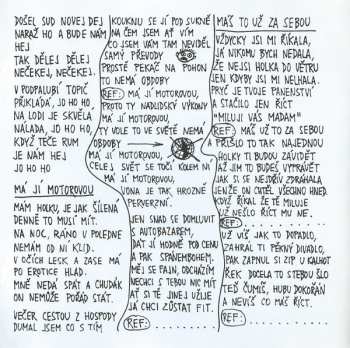 DOŠEL SUD NOVEJ DEJ
NARAŽ HO A BUDE NÁM
HEJ
TAK DĚLEJ DĚLEJ
NEČEKEJ, NEČEKEJ.
V PODPALUBÍ TOPIČ
PŘIKLÁDÁ, JO HO HO,
NA LODI JE SKVĚLÁ
NÁLADA, JO HO HO,
KDYŽ TEČE RUM
JE NÁM HEJ
JO HO HO
MÁ JÍ MOTOROVOU
MÁM HOLKU, JE JAK ŠÍLENÁ
DENNĚ TO MUSÍ MÍT.
NA NOC, RÁNO V POLEDNE
NEMÁM OD NÍ KLID.
V OČÍCH LESK A ZASE MÁ
PO EROTICE HLAD.
MNĚ NEDÁ SPÁT A CHUDÁK
ON NEMŮŽE POŘÁD STÁT.
VEČER CESTOU Z HOSPODY
DUMAL JSEM CO S TÍM
KOUKNU SE JÍ POD SUKNĚ
NA ČEM JSEM AŤ VÍM
CO JSEM VÁM TAM NEVIDĚL
SAMÝ PŘEVODY
PROSTĚ PEKÁČ NA POHON
TO NEMÁ OBDOBY
REF: MÁ JÍ MOTOROVOU,
PROTO TY NADLIDSKÝ VÝKONY
MÁ JÍ MOTOROVOU,
TY VOLE TO VE SVĚTĚ NEMÁ
OBDOBY
MÁ JÍ MOTOROVOU,
CELEJ SVĚT SE TOČÍ KOLEM NÍ
MÁ JÍ MOTOROVOU,
VONA JE TAK HROZNĚ
PERVERZNÍ.
JEN SNAD SE DOMLUVIT
S AUTOBAZAREM,
DÁT JÍ HODNĚ POD CENU
A PAK SPÁNEMBOHEM.
MĚJ SE FAJN, ODCHÁZÍM
NECHCI S TEBOU NIC MÍT
AŤ SI TĚ JINEJ UŽIJE
JÁ CHCI ZŮSTAT FIT.
REF: ..........
MÁŠ TO UŽ ZA SEBOU
VŽDYCKY JSI MI ŘÍKALA,
JÁ NIKOMU BYCH NEDALA,
ŽE NEJSI HOLKA DO VĚTRU
JEN KDYBY JSI MI NELHALA.
PRYČ JE TVOJE PANENSTVÍ
A STAČILO JEN ŘÍCT
"MILUJI VÁS MADAM"
REF: MÁŠ UŽ TO ZA SEBOU
A PŘIŠLO TO TAK NAJEDNOU
HOLKY TI BUDOU ZÁVIDĚT
AŽ JIM TO BUDEŠ VYPRÁVĚT
JAK SI SE NEJDŘÍV ZDRÁHALA,
JENŽE ON CHTĚL VŠECHNO HNED.
KDYŽ ŘÍKAL ŽE TĚ MILUJE
UŽ NEŠLO ŘÍCT MU NE.
REF: ..........
UŽ VÍŠ JAK TO DOPADLO,
ZAHRÁL TI PĚKNÝ DIVADLO,
PAK ZAPNUL SI ZIP U KALHOT
ŘEK DOCELA TO S TEBOU ŠLO
TEĎ ČUMÍŠ, HUBU DOKOŘÁN
A NEVÍŠ CO MÁŠ ŘÍCT.
REF: ..........